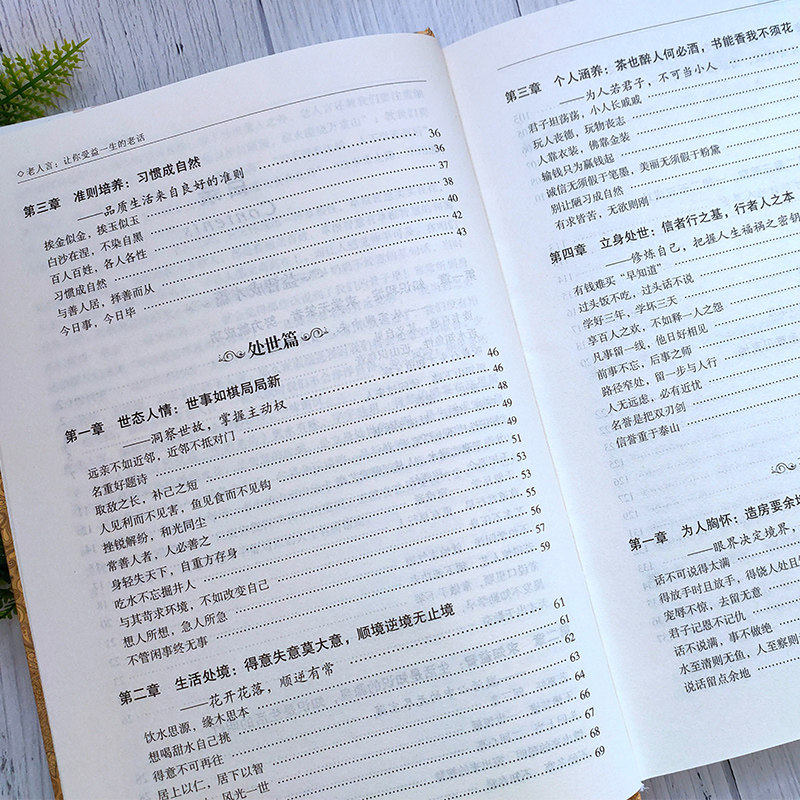 ◇老人言：让你受益一生的老话
第三章 准则培养：习惯成自然 36
——品质生活来自良好的准则
挨金似金，挨玉似玉 36
白沙在涅，不染自黑 37
百人百姓，各人各性 38
习惯成自然 40
与善人居，择善而从 42
今日事，今日毕 43
处世篇
第一章 世态人情：世事如棋局局新 46
——洞察世故，掌握主动权
远亲不如近邻，近邻不抵对门 46
名重好题诗 48
取敌之长，补己之短 49
人见利而不见害，鱼见食而不见钩 49
挫锐解纷，和光同尘 51
常善人者，人必善之
身轻失天下，自重方存身 53
吃水不忘掘井人 55
与其苛求环境，不如改变自己 56
想人所想，急人所急 57
不管闲事终无事 59
第二章 生活处境：得意失意莫大意，顺境逆境无止境 61
——花开花落，顺逆有常
饮水思源，缘木思本 61
想喝甜水自己挑 62
得意不可再往 63
居上以仁，居下以智 64
风光一世 66
67
68
69
第三章 个人涵养：茶也醉人何必酒，书能香我不须花
——为人若君子，不可当小人
君子坦荡荡，小人长戚戚
玩人丧德，玩物丧志
人靠衣装，佛靠金装
输钱只为赢钱起
诚信无须假于笔墨，美丽无须假于粉黛
别让陋习成自然
有求皆苦，无欲则刚
第四章 立身处世：信者行之基，行者人之本
——修炼自己，把握人生福祸之密钥
有钱难买“早知道”
过头饭不吃，过头话不说
学好三年，学坏三天
享百人之欢，不如释一人之怨
凡事留一线，他日好相见
前事不忘，后事之师
路径窄处，留一步与人行
人无远虑，必有近忧
名誉是把双刃剑
信誉重于泰山
第一章 为人胸怀：造房要余
——眼界决定境界，
话不可说得太满
得放手时且放手，得饶人处且
宠辱不惊，去留无意
君子记恩不记仇
话不说满，事不做绝
水至清则无鱼，人至察则
说话留点余地